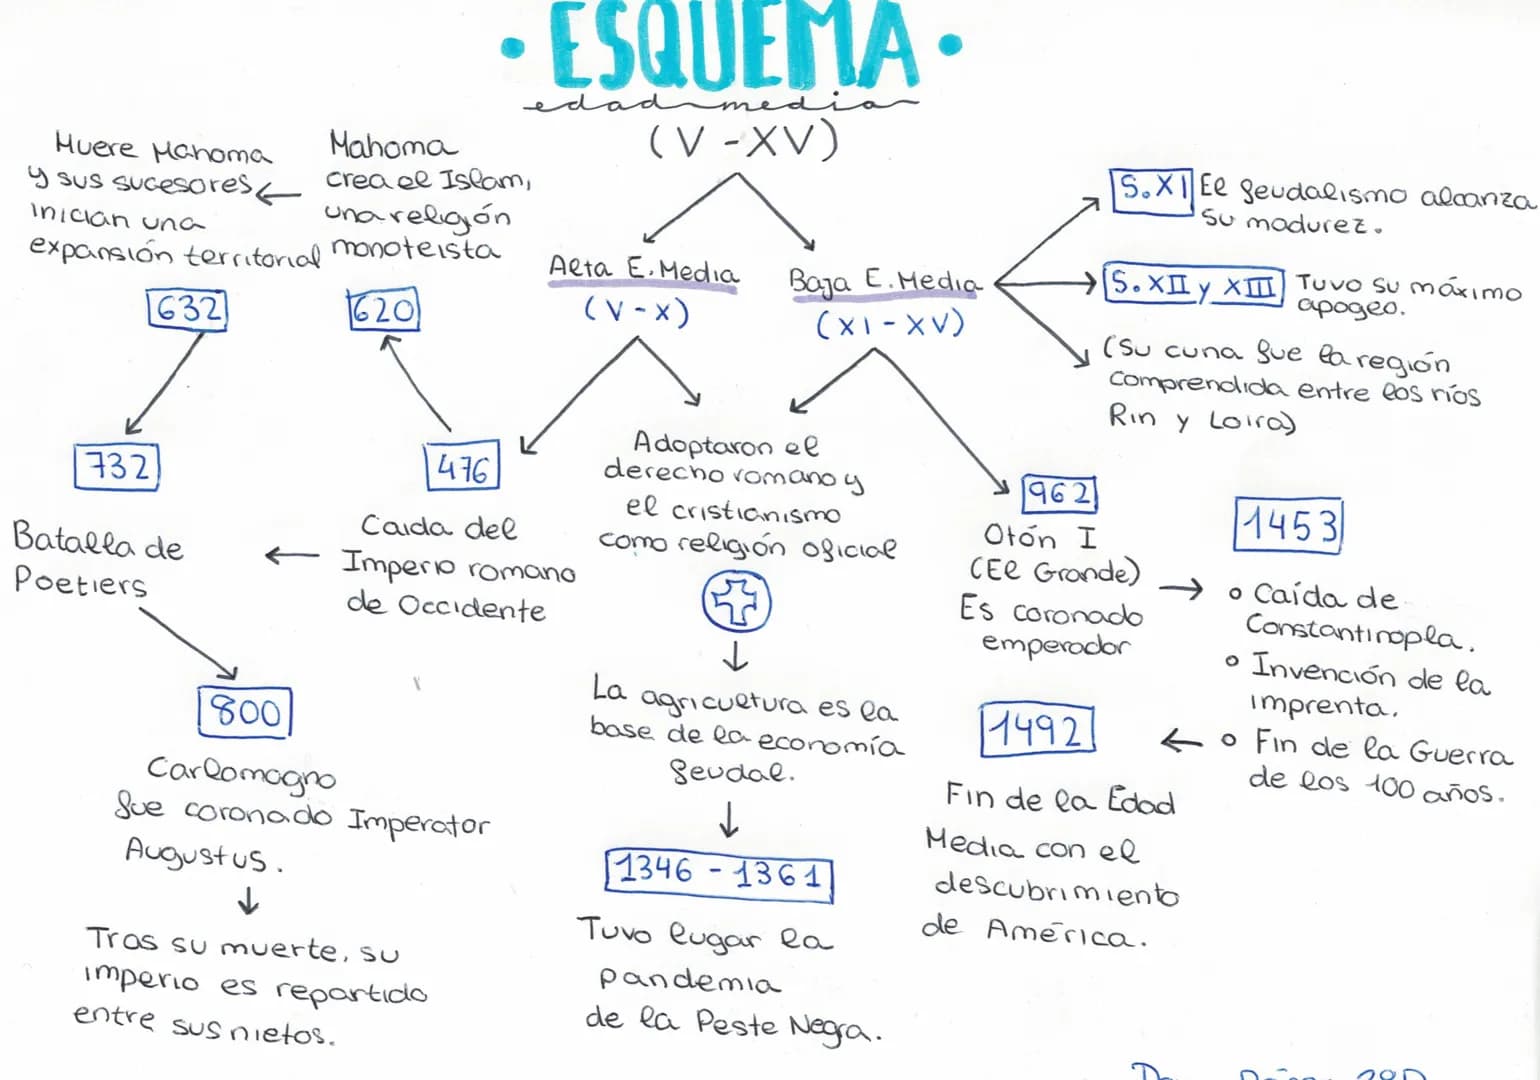 • ESQUEMA •
edad media
(V - XV)
Muere Mahoma
y sus sucesores
inician una
expansión territorial
632
Mahoma
crea el Islam,
una religión
monoteista
620
Alta E. Media
(V - X)
Baja E. Media
(XI - XV)
S. XI El feudalismo alcanza
su madurez.
S. XII y XIII Tuvo su máximo
apogeo.
(Su cuna fue la región
comprendida entre los ríos
Rin y Loira)
732
Batalla de
Poetiers
476
Caída del
Imperio romano
de Occidente
Adoptaron el
derecho romano y
el cristianismo
como religión oficial
962
Otón I
(El Grande)
Es coronado
emperador
1453
• Caída de
Constantinopla.
• Invención de la
imprenta.
• Fin de la Guerra
de los 100 años.
800
Carlomagno
fue coronado Imperator
Augustus.
Tras su muerte, su
imperio es repartido
entre sus nietos.
La agricultura es la
base de la economía
feudal.
1346 - 1361
Tuvo lugar la
pandemia
de la Peste Negra.
1492
Fin de la Edad
Media con el
descubrimiento
de América.